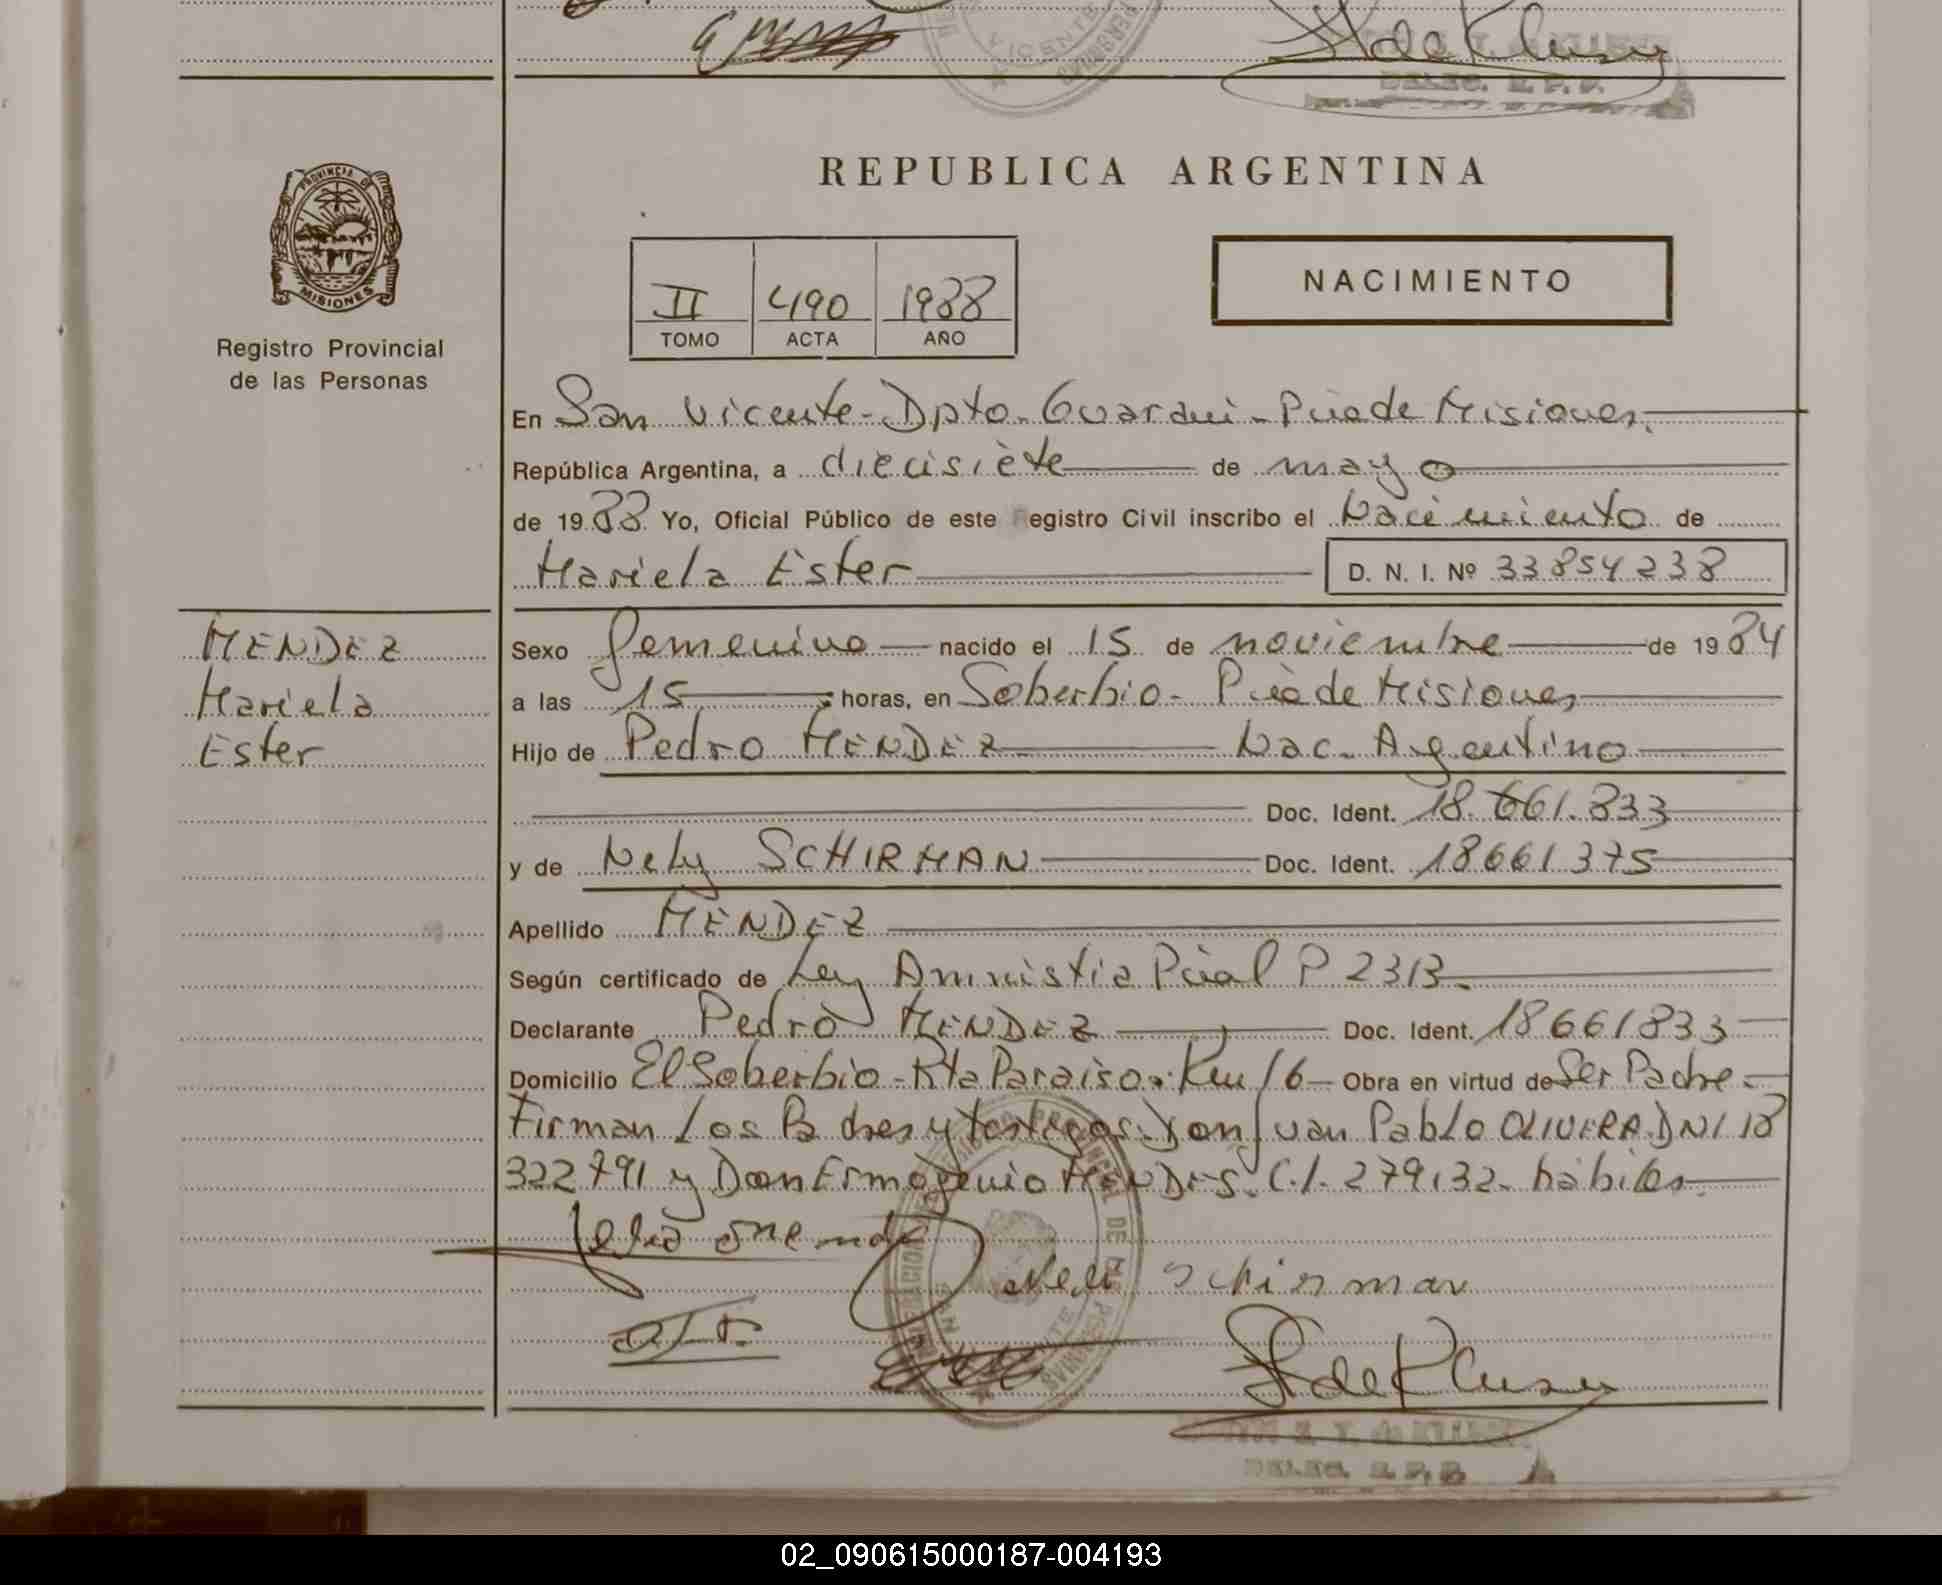 VICENTE
PERSONAS
DELEG. R. P. P.
PROVINCIA DE
MISIONES
Registro Provincial
de las Personas
REPUBLICA ARGENTINA
NACIMIENTO
II 490 1988
TOMO ACTA AÑO
En San Vicente - Dpto. Guarani - Pcia de Misiones.
República Argentina, a diecisiete de mayo
de 1988 Yo, Oficial Público de este Registro Civil inscribo el Nacimiento de
Mariela Ester D. N. I. Nº 33854238
MENDEZ
Mariela
Ester
Sexo femenino nacido el 15 de noviembre de 1984
a las 15 horas, en Soberbio - Pcia de Misiones
Hijo de Pedro MENDEZ Nac. Argentino
Doc. Ident. 18.661.833
y de Nely SCHIRMAN Doc. Ident. 18661375
Apellido MENDEZ
Según certificado de Ley Amnistia Pcial P 2313.
Declarante Pedro MENDEZ Doc. Ident. 18661833
Domicilio El Soberbio - Rta Paraiso. Km 16 Obra en virtud de Ser Padre -
Firman los Padres y testigos: Don Juan Pablo OLIVERA. DNI 18
322791 y Don Ermogenio MENDES. C.I. 279132. habiles.
Neli Schirman
DELEG. R. P. P.
02_090615000187-004193